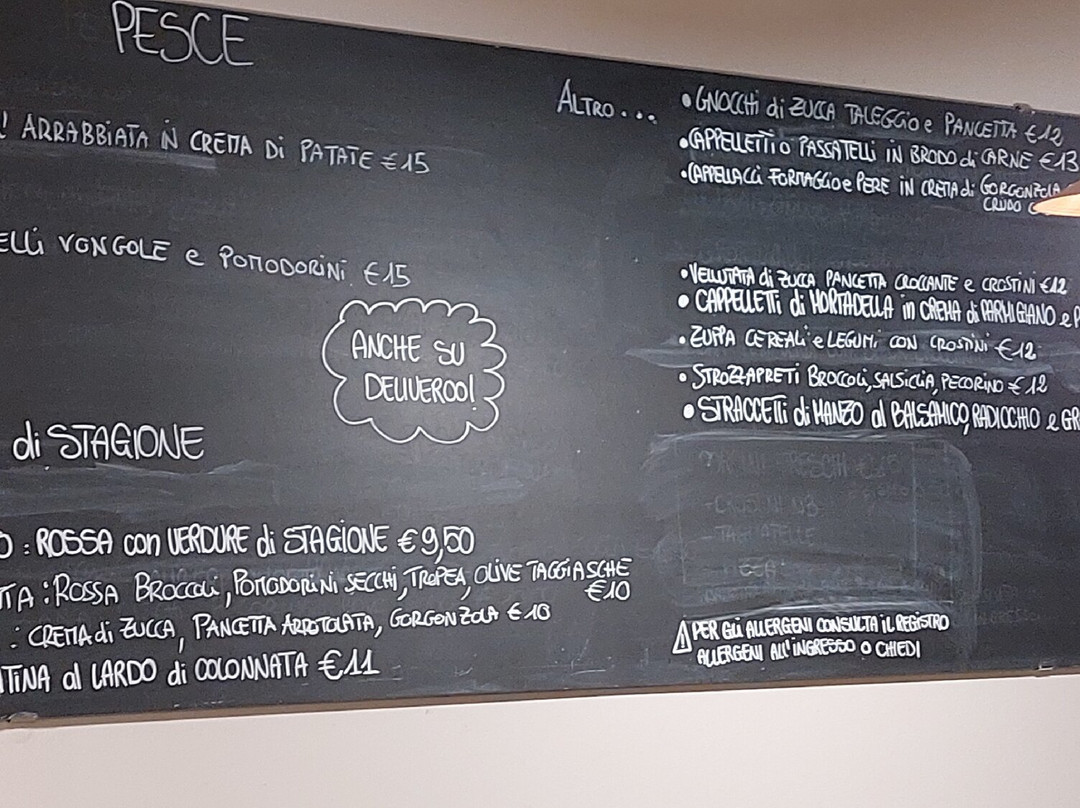 PESCE
ARRABBIATA IN CREMA Di PATATE €15
VONGOLE e POMODORINI €15
ANCHE SU
DELIVEROO!
di STAGIONE
: ROSSA con VERDURE di STAGIONE €9,50
: ROSSA BROCCOLI, POMODORINI SECCHI, TROPEA, OLIVE TAGGIASCHE
€10
: CREMA di ZUCCA, PANCETTA ARROTOLATA, GORGONZOLA €10
al LARDO di COLONNATA €11
ALTRO...
• GNOCCHI di ZUCCA TALEGGIO e PANCETTA €12
• CAPPELLETTI O PASSATELLI IN BRODO di CARNE €13
• CAPPELLACCI FORMAGGIO e PERE IN CREMA di GORGONZOLA
CRUDO
• VELLUTATA di ZUCCA PANCETTA CROCCANTE e CROSTINI €12
• CAPPELLETTI di MORTADELLA in CREMA di PARMIGIANO e
• ZUPPA CEREALI e LEGUMI CON CROSTINI €12
• STROZZAPRETI BROCCOLI, SALSICCIA, PECORINO €12
• STRACCETTI di MANZO al BALSAMICO, RADICCHIO e
⚠ PER GLI ALLERGENI CONSULTA IL REGISTRO
ALLERGENI ALL'INGRESSO O CHIEDI